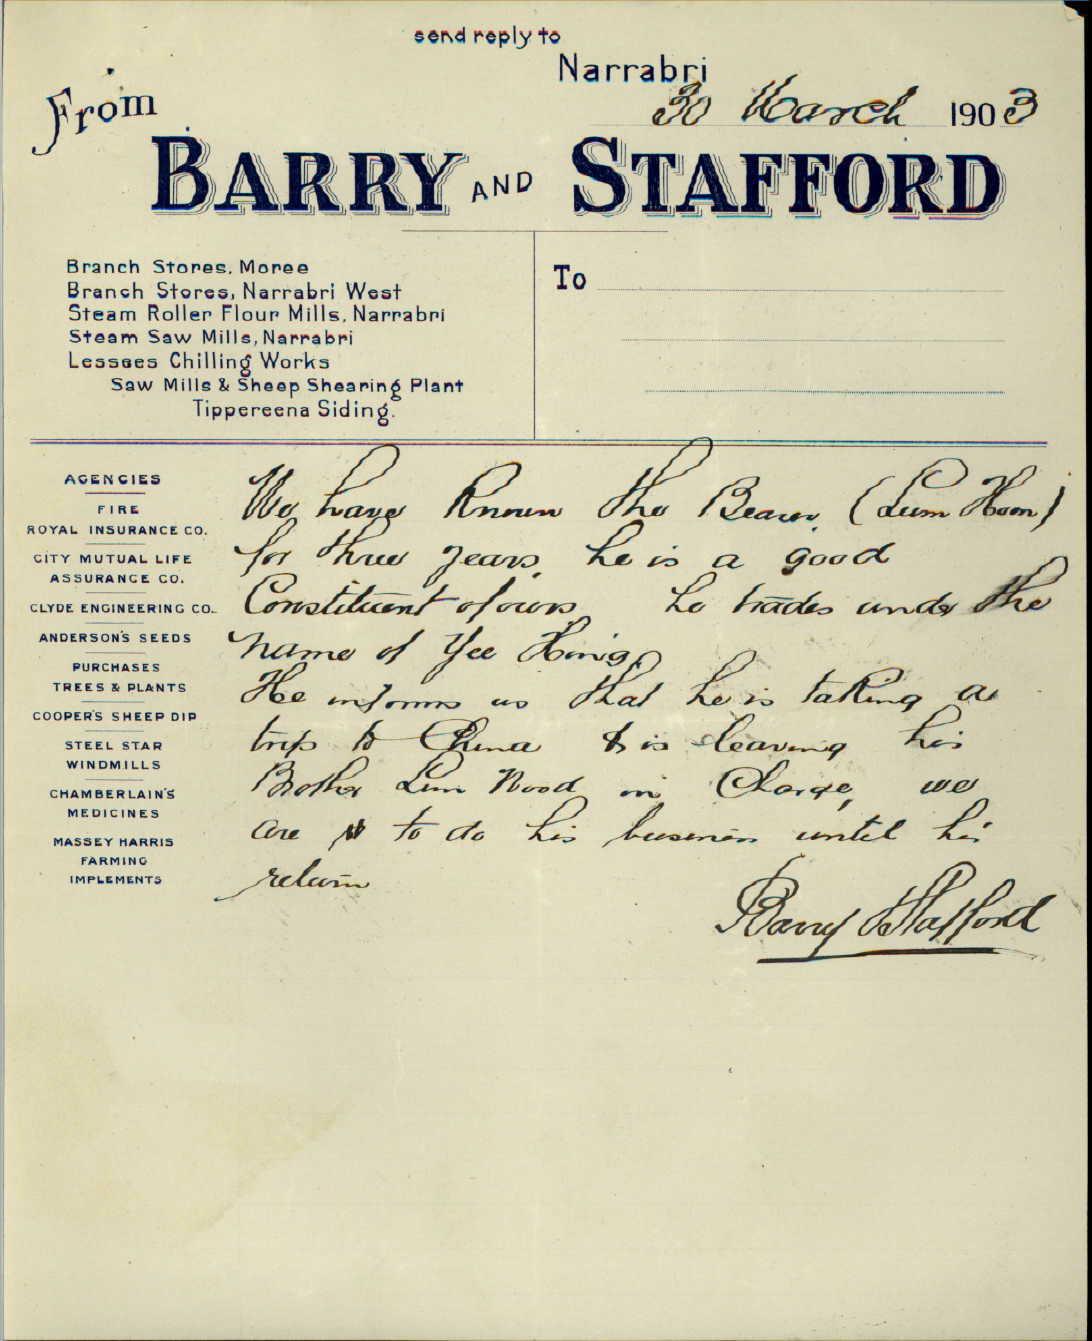 send reply to
Narrabri
30 March 1903
From
BARRY AND STAFFORD
Branch Stores, Moree
Branch Stores, Narrabri West
Steam Roller Flour Mills, Narrabri
Steam Saw Mills, Narrabri
Lessees Chilling Works
Saw Mills & Sheep Shearing Plant
Tippereena Siding.
To
AGENCIES
FIRE
ROYAL INSURANCE CO.
CITY MUTUAL LIFE
ASSURANCE CO.
CLYDE ENGINEERING CO.
ANDERSON'S SEEDS
PURCHASES
TREES & PLANTS
COOPER'S SHEEP DIP
STEEL STAR
WINDMILLS
CHAMBERLAIN'S
MEDICINES
MASSEY HARRIS
FARMING
IMPLEMENTS
We have Known the Bearer, (Lum Hoon)
for three years, he is a good
Constituent of ours he trades under the
name of Yee Hing,
He informs us that he is taking a
trip to China & is leaving his
Brother Lum Wood in Charge, we
are to do his business until his
return
Barry Stafford